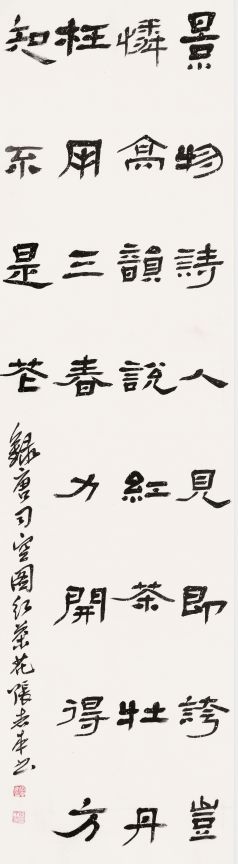 景物詩人見即誇豈
憐高韻說紅茶牡丹
枉用三春力開得方
知不是花
錄唐司空圖紅茶花張志本书